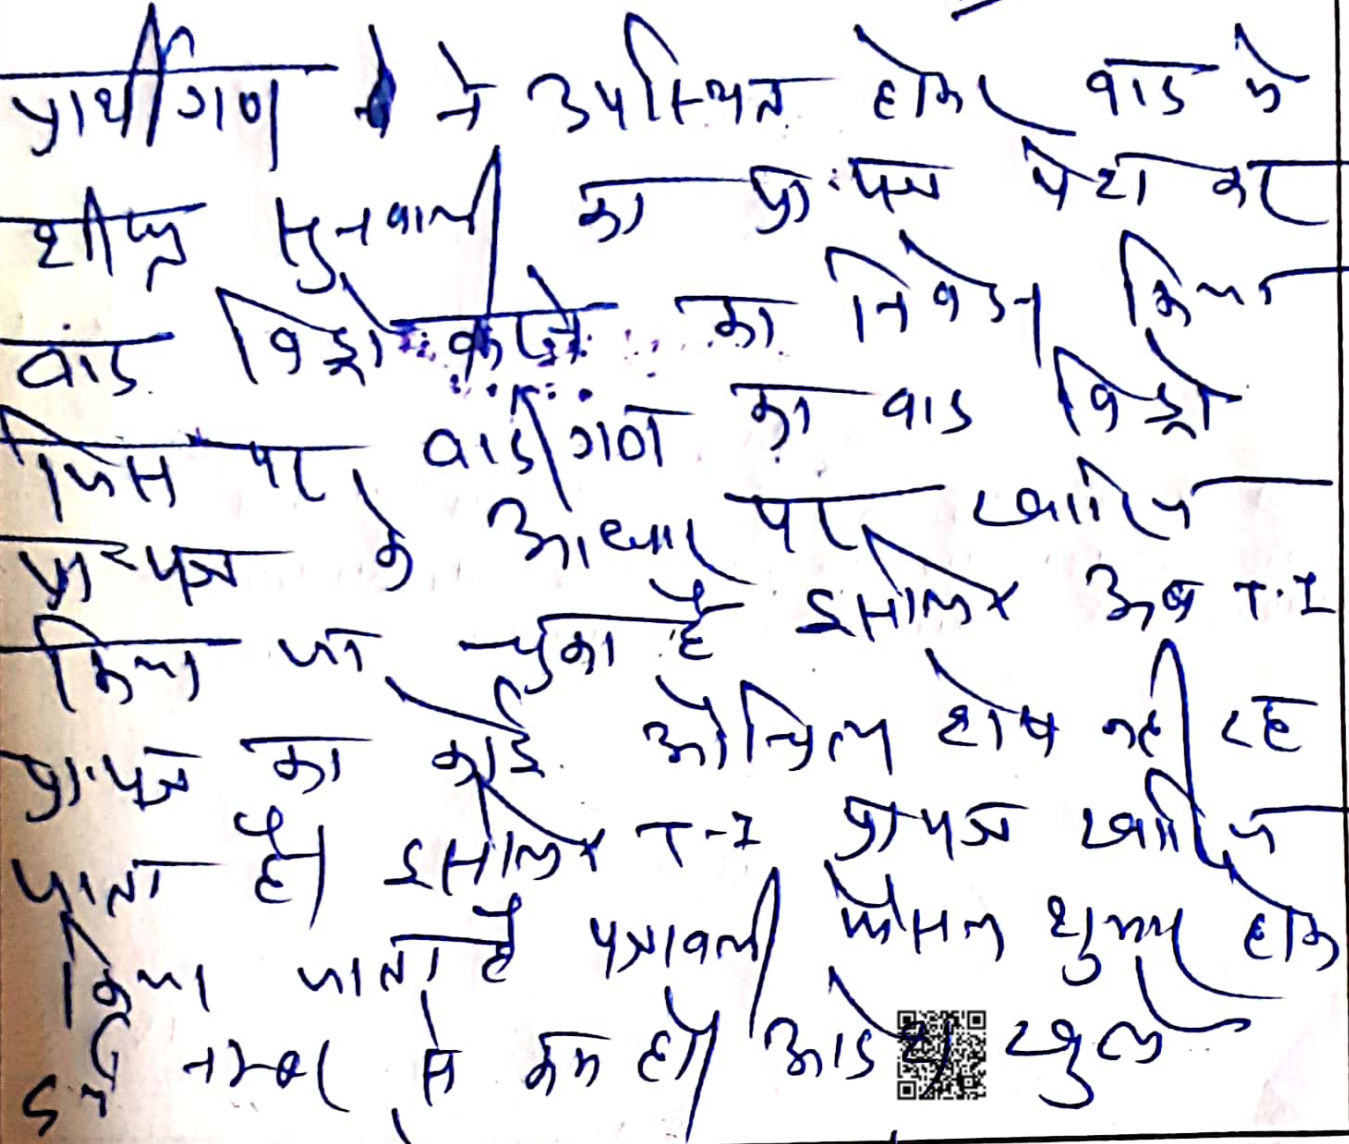 प्रार्थीगण ने उपस्थित होकर वाद मे
शीघ्र सुनवाली का प्रा.पत्र पेश कर
वाद विड्रो करने का निवेदन किया
जिस पर वादीगण का वाद विड्रो
प्रा.पत्र के आधार पर खारिज
किया जा चुका है इसलिए अब T.I
प्रा.पत्र का कोई औचित्य शेष नही रह
जाता है। इसलिए T-I प्रा पत्र खारिज
किया जाता है पत्रावली फैसल शुमार होकर
नम्बर से कम हो। आदेश खुले